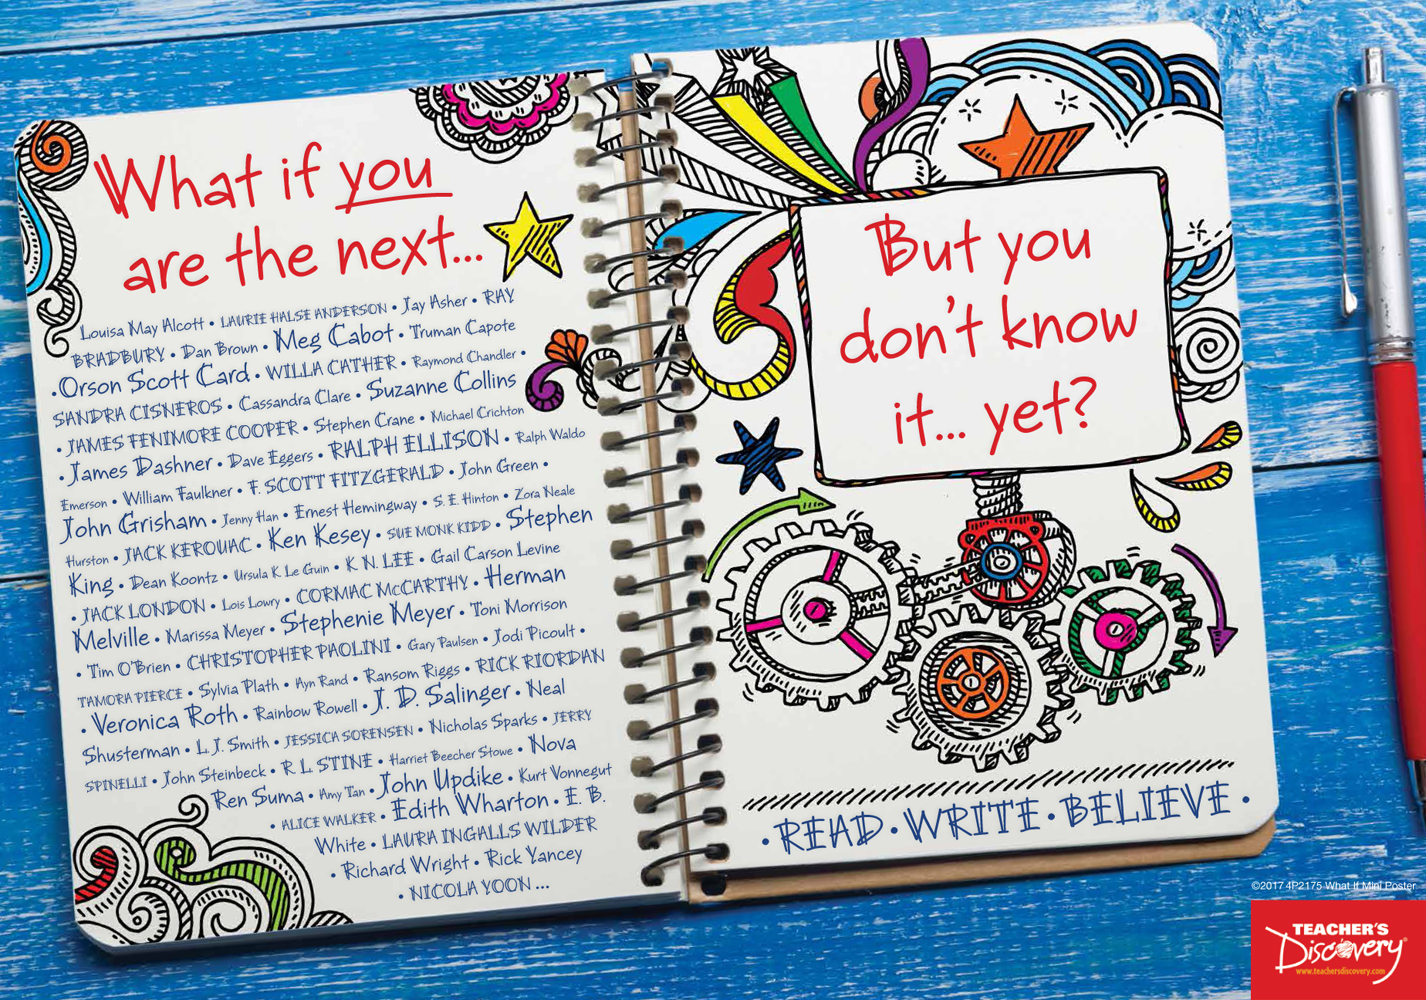 What if you
are the next...
Louisa May Alcott • LAURIE HALSE ANDERSON • Jay Asher • RAY
BRADBURY • Dan Brown • Meg Cabot • Truman Capote
• Orson Scott Card • WILLA CATHER • Raymond Chandler •
SANDRA CISNEROS • Cassandra Clare • Suzanne Collins
• JAMES FENIMORE COOPER • Stephen Crane • Michael Crichton
• James Dashner • Dave Eggers • RALPH ELLISON • Ralph Waldo
Emerson • William Faulkner • F. SCOTT FITZGERALD • John Green •
John Grisham • Jenny Han • Ernest Hemingway • S. E. Hinton • Zora Neale
Hurston • JACK KEROUAC • Ken Kesey • SUE MONK KIDD • Stephen
King • Dean Koontz • Ursula K. Le Guin • K. N. LEE • Gail Carson Levine
• JACK LONDON • Lois Lowry • CORMAC McCARTHY • Herman
Melville • Marissa Meyer • Stephenie Meyer • Toni Morrison
• Tim O'Brien • CHRISTOPHER PAOLINI • Gary Paulsen • Jodi Picoult •
TAMORA PIERCE • Sylvia Plath • Ayn Rand • Ransom Riggs • RICK RIORDAN
• Veronica Roth • Rainbow Rowell • J. D. Salinger • Neal
Shusterman • L. J. Smith • JESSICA SORENSEN • Nicholas Sparks • JERRY
SPINELLI • John Steinbeck • R. L. STINE • Harriet Beecher Stowe • Nova
Ren Suma • Amy Tan • John Updike • Kurt Vonnegut
• ALICE WALKER • Edith Wharton • E. B.
White • LAURA INGALLS WILDER
• Richard Wright • Rick Yancey
• NICOLA YOON ...
But you
don't know
it... yet?
• READ • WRITE • BELIEVE •
©2017 4P2175 What If Mini Poster
TEACHER'S
Discovery®
www.teachersdiscovery.com